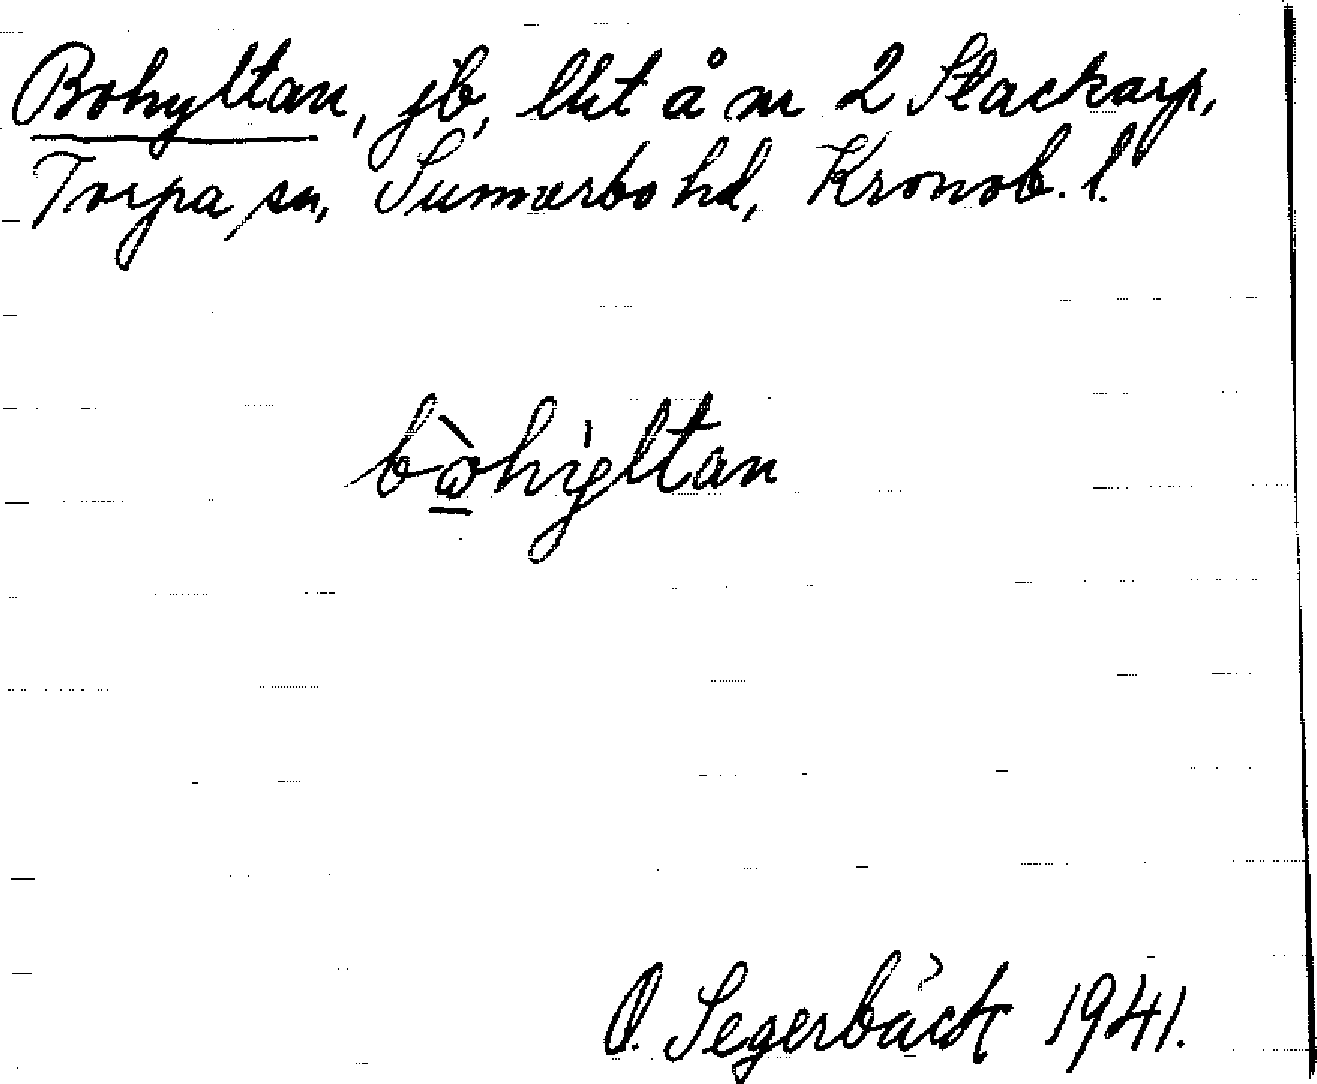 Bohyltan, jb, lht å nr 2 Stackarp,
Torpa sn, Sunnerbo hd, Kronob. l.
bòhỳltan
O. Segerbäck 1941.